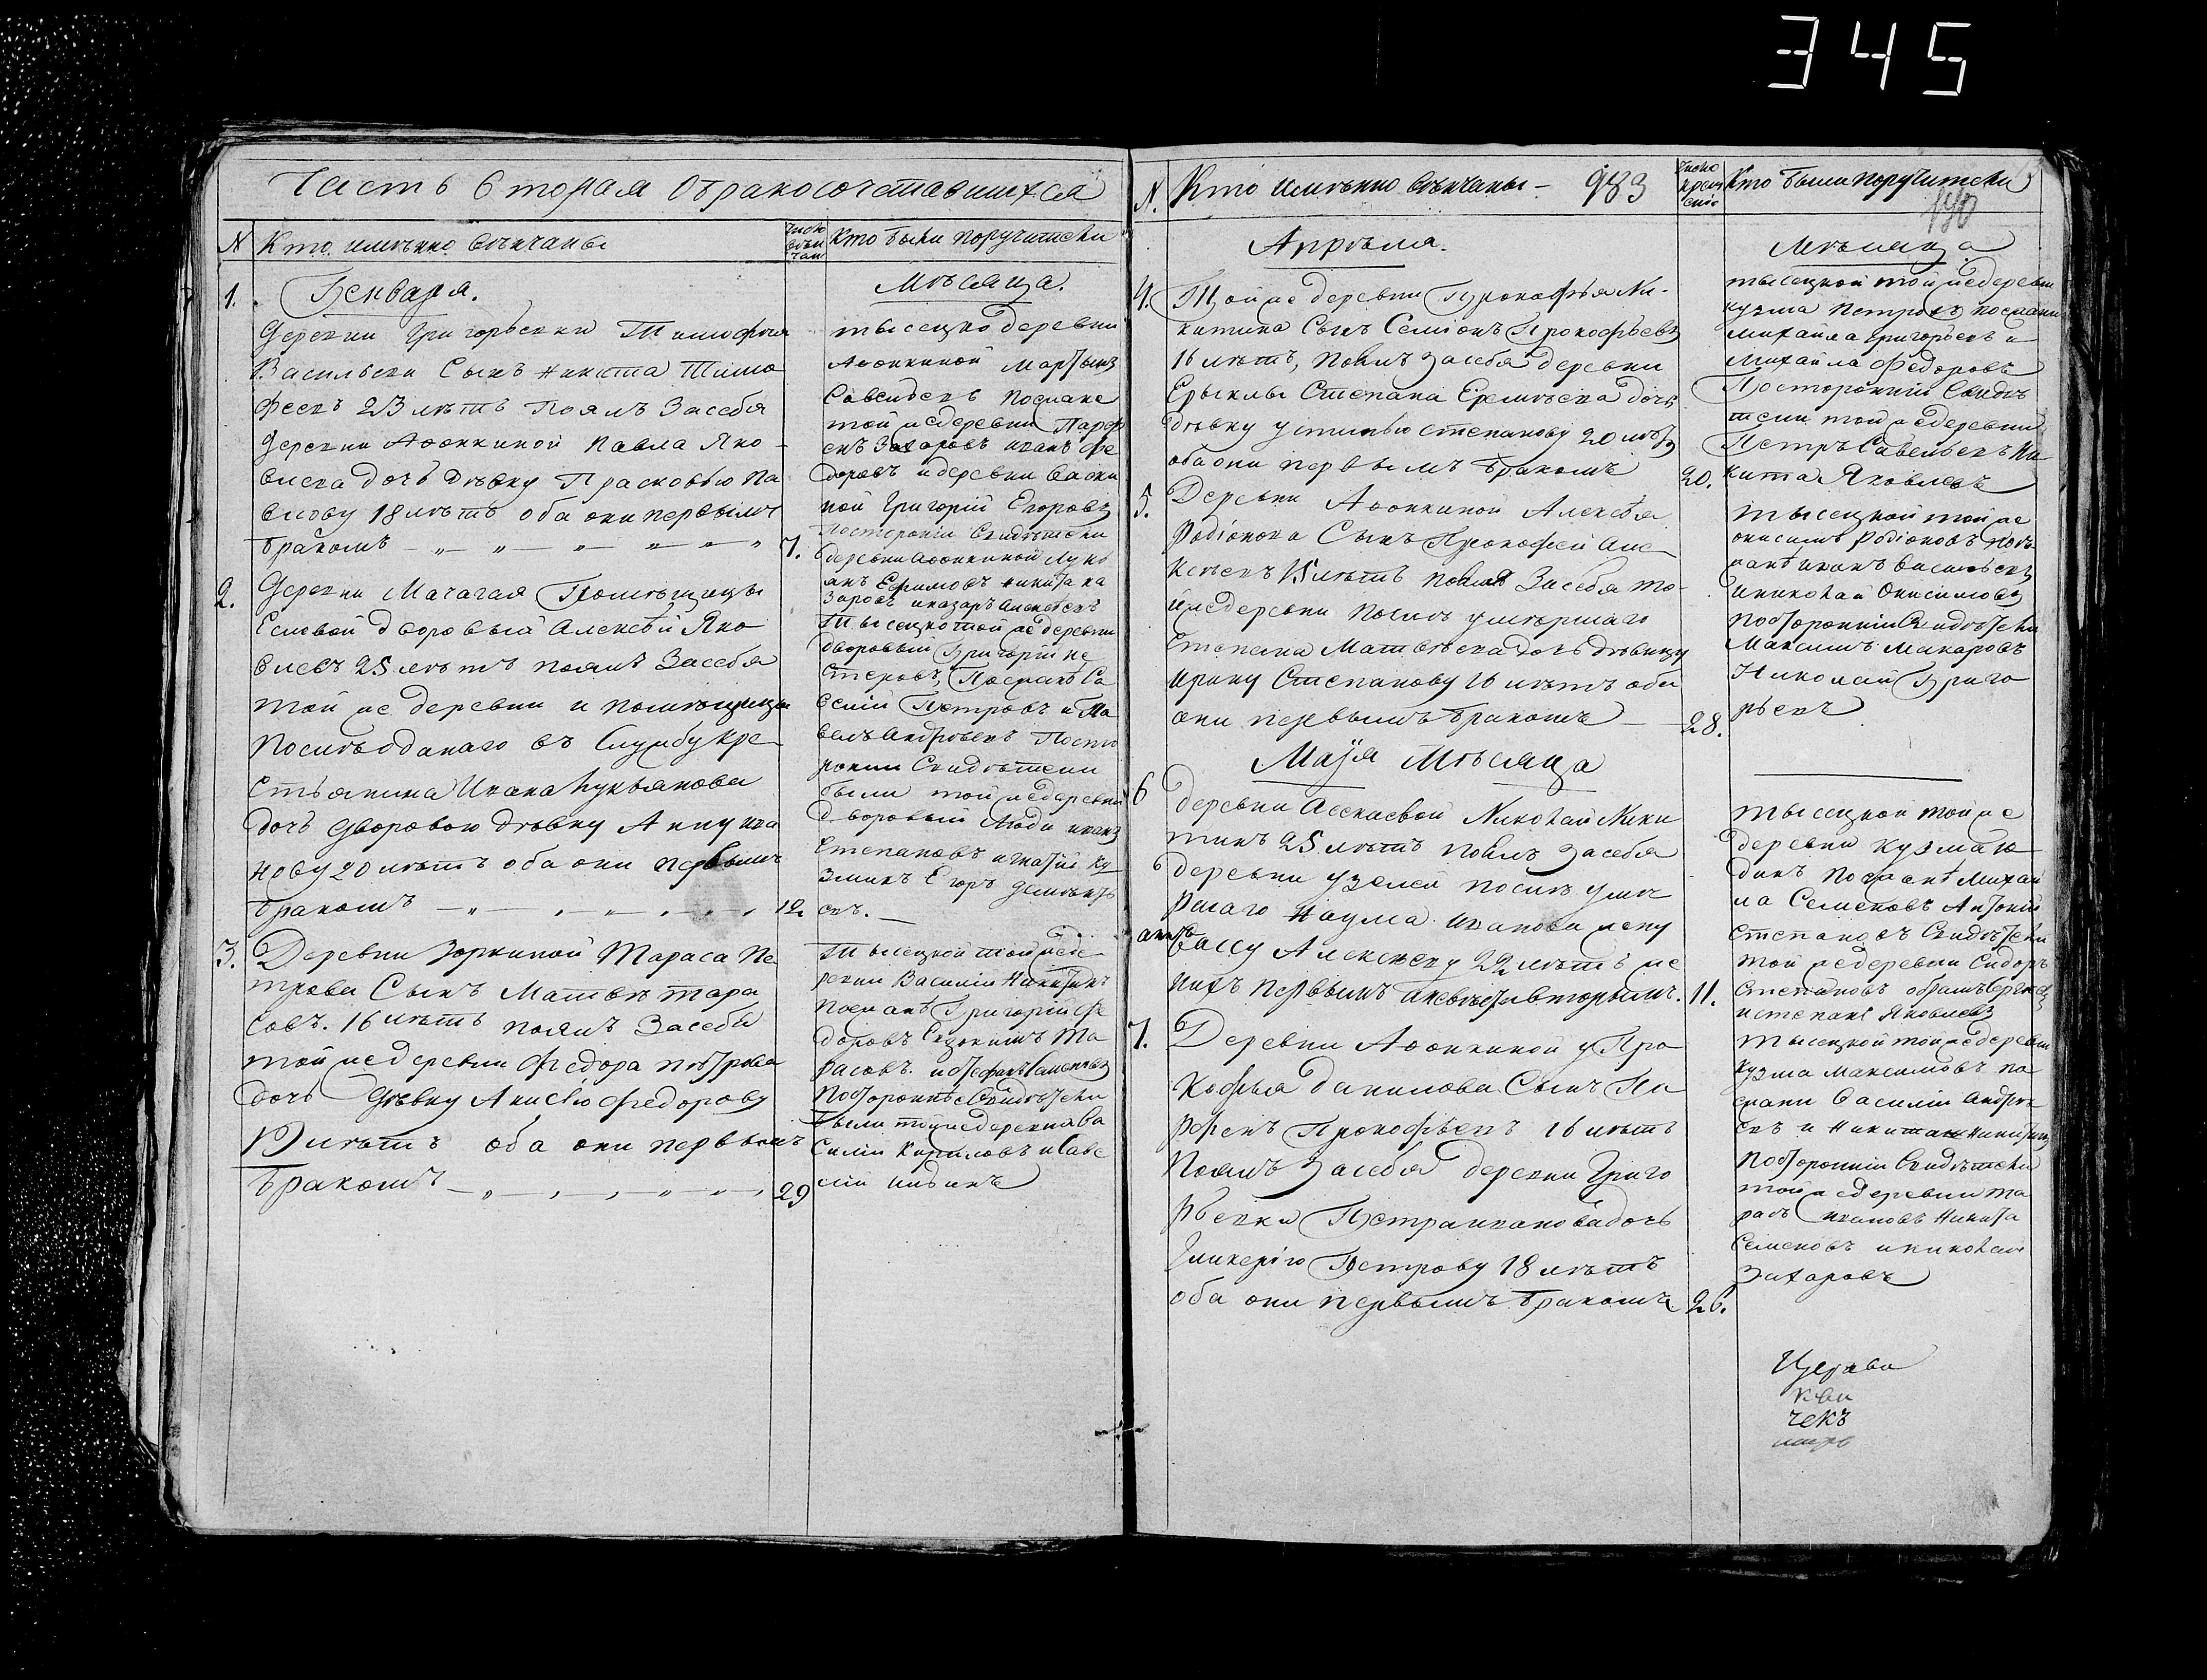 345
Часть вторая о бракосочетавшихся
№ Кто именно венчаны
число венчан
Кто были поручители
Генваря.
Месяца.
1.
Деревни Григорьевки Тимофея
Васильева Сынъ Никита Тимо
феевъ 23 летъ поялъ за себя
деревни Афонкиной Павла Яко-
влева дочь девку Прасковью Па
влову 18 летъ оба они первымъ
бракомъ
7.
тысецко деревни
Афонкиной Мартынъ
Савельевъ поежане
той же деревни Парф
енъ Захаровъ иванъ Фе
доровъ и деревни
ной Григорий Егоровъ
посторонiи Свидетели
деревни Афонкиной Лукь
янъ Ефимовъ никита на
заровъ и назаръ Алексеевъ
2.
Деревни Мачагая Помещицы
дворовый Алексей Яко
влевъ 25 летъ поялъ за себя
той же деревни и помещицы
после отданаго въ Службу кре
стьянина Ивана Лукьянова
дочь дворовою девку Анну ива
нову 20 летъ оба они первымъ
бракомъ
12.
Тысецко той же деревни
дворовый Григорий не
стеровъ, Поежане Са
велiй Петровъ и Па
велъ Андреевъ Посто
ронии Свидетели
были той же деревни
дворовыи люди иванъ
Степановъ игнатiй ку
зминъ Егоръ дементь
евъ.
3.
Деревни Зоркиной Тараса Пе
трова Сынъ Матвей тара
совъ. 16 летъ поялъ за себя
той же деревни Федора петрова
дочь девку Анисью Федорову
летъ оба они первымъ
бракомъ
29
Тысецкой той же де
ревни Василiй Никитинъ
поежане Григорий Фе
доровъ Евдокимъ Та
расовъ. и Стефанъ Семеновъ
посторонне Свидетели
были той же деревни Ва
силiй Кириловъ и Саве
лiй
№ Кто именно венчаны - 983
число
Кто были поручители
Апреля.
Месяца
4.
Той же деревни Прокофья Ни-
китина Сынъ Семiонъ Прокофьевъ
16 летъ, поялъ за себя деревни
Ерыклы Степана Еремеева дочь
девку устинью степанову 20 летъ
оба они первымъ бракомъ
20.
тысецкой той же деревни
кузма Петровъ поежани
михайла Григорьевъ и
михайла Федоровъ
Посторонний Свиде
тели той же деревни
Петръ Савельевъ Ни
кита Яковлевъ
5.
Деревни Афонкиной Алексея
Родiонова Сынъ Прокофей Але
ксеевъ 15 летъ поялъ за себя то
й же деревни после умершаго
Степана Матвеева дочь девицу
ирину Степанову 16 летъ оба
они первымъ бракомъ
28.
тысецкой той же
онисимъ Родiоновъ поез-
жане иванъ Васильевъ
и николай Онисимовъ
посторонний Свидетели
Максимъ Макаровъ
Николай Григо
рьевъ
Маiя Месяца
6
деревни Николай Ники
тинъ 25 летъ поялъ за себя
деревни узелей после уме
ршаго Наума Иванова жену
вассу Алексееву 22 летъ же
нихъ первымъ а невеста вторымъ.
11.
тысецкой той же
деревни кузма ю
динъ поежане Михаи
ла Семеновъ Антонiй
степановъ Свидетели
той же деревни Сидоръ
Степановъ
и степанъ Яковлевъ
7.
Деревни Афонкиной у Про
кофья данилова Сынъ Па
рфенъ Прокофьевъ 16 летъ
поялъ за себя деревни Григо
рьевки Петра иванова дочь
Гликерiю Петрову 18 летъ
оба они первымъ бракомъ
26.
тысецкой той же деревни
кузма Максимовъ по
ежани Василiй Андре
евъ и Никита Никитинъ
посторонни Свидетели
той же деревни та
расъ ивановъ Никита
Семеновъ и николай
Захаровъ